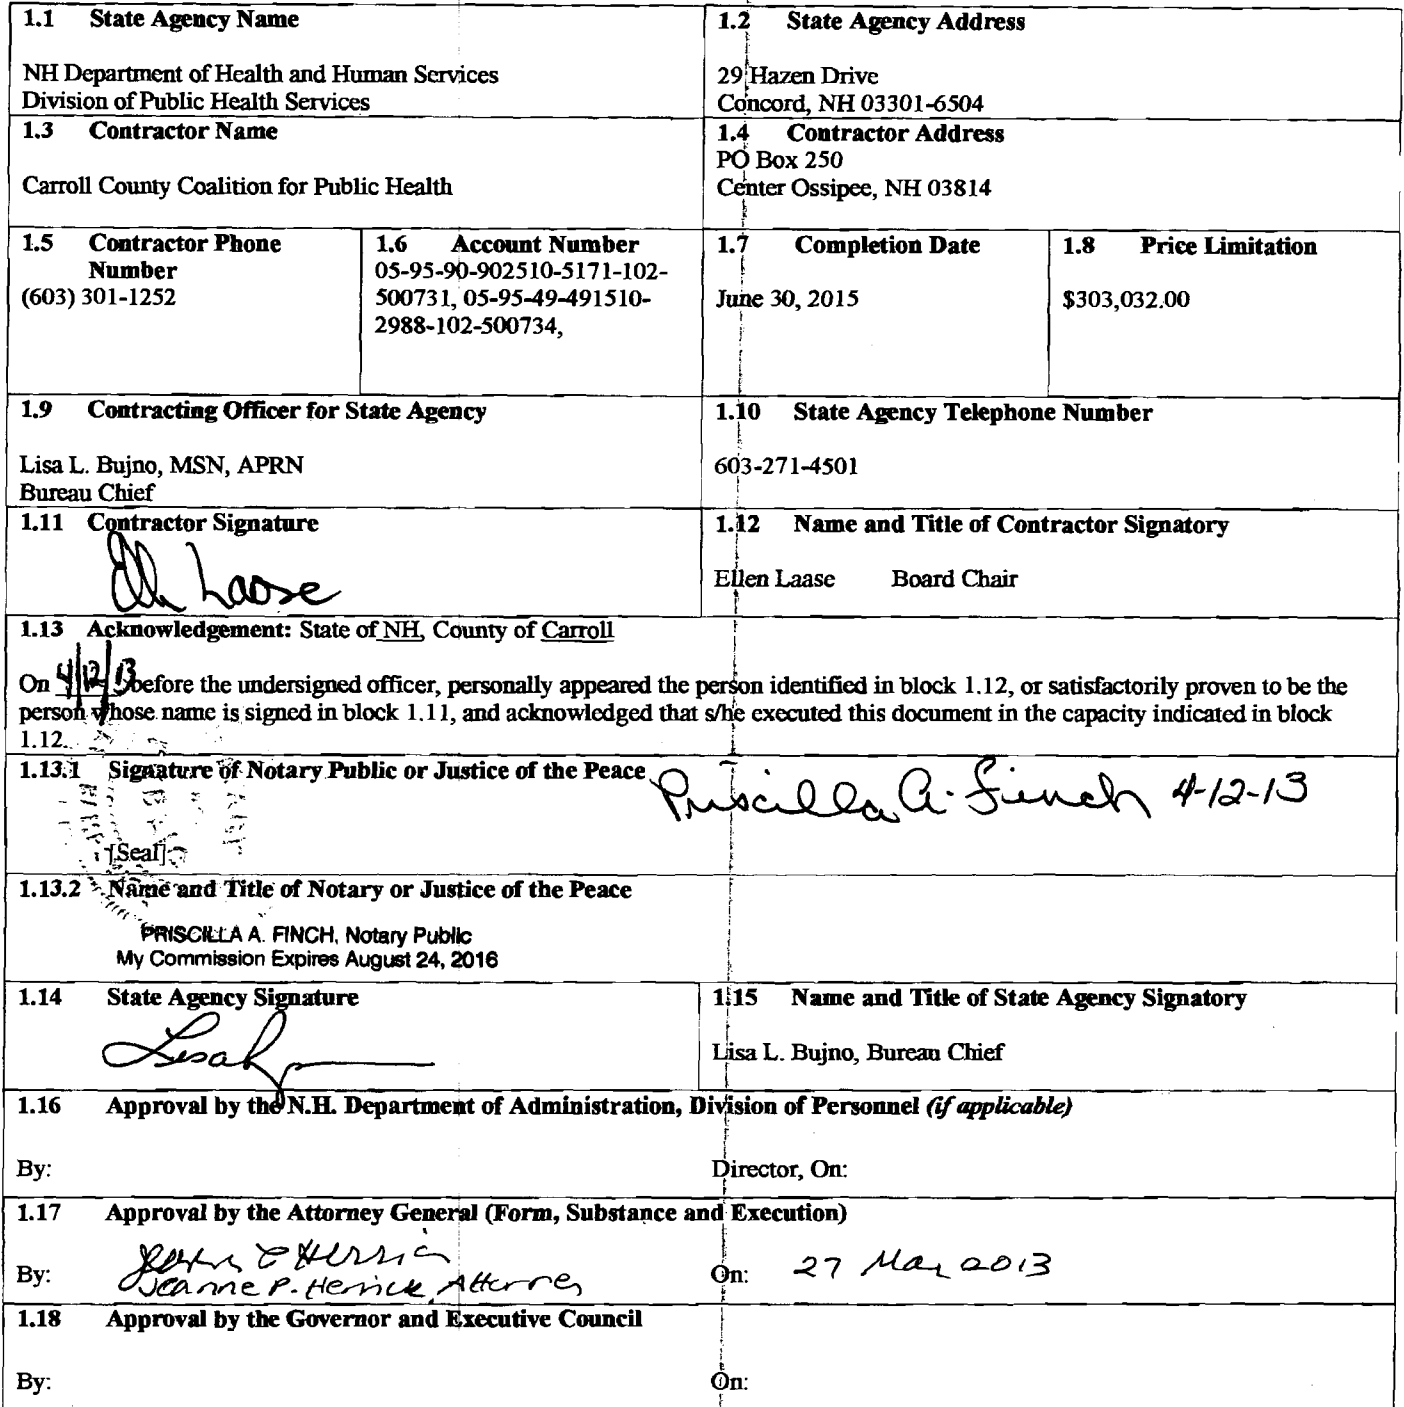 1.1 State Agency Name
NH Department of Health and Human Services
Division of Public Health Services
1.2 State Agency Address
29 Hazen Drive
Concord, NH 03301-6504
1.3 Contractor Name
Carroll County Coalition for Public Health
1.4 Contractor Address
PO Box 250
Center Ossipee, NH 03814
1.5 Contractor Phone
Number
(603) 301-1252
1.6 Account Number
05-95-90-902510-5171-102-
500731, 05-95-49-491510-
2988-102-500734,
1.7 Completion Date
June 30, 2015
1.8 Price Limitation
$303,032.00
1.9 Contracting Officer for State Agency
Lisa L. Bujno, MSN, APRN
Bureau Chief
1.10 State Agency Telephone Number
603-271-4501
1.11 Contractor Signature
Elln Laase
1.12 Name and Title of Contractor Signatory
Ellen Laase Board Chair
1.13 Acknowledgement: State of NH, County of Carroll
On 4/12/13 before the undersigned officer, personally appeared the person identified in block 1.12, or satisfactorily proven to be the
person whose name is signed in block 1.11, and acknowledged that s/he executed this document in the capacity indicated in block
1.12.
1.13.1 Signature of Notary Public or Justice of the Peace
Priscilla A. Finch 4-12-13
[Seal]
1.13.2 Name and Title of Notary or Justice of the Peace
PRISCILLA A. FINCH, Notary Public
My Commission Expires August 24, 2016
1.14 State Agency Signature
Lisa
1.15 Name and Title of State Agency Signatory
Lisa L. Bujno, Bureau Chief
1.16 Approval by the N.H. Department of Administration, Division of Personnel (if applicable)
By: Director, On:
1.17 Approval by the Attorney General (Form, Substance and Execution)
By: Jeanne P. Herrick, Attorney
On: 27 May 2013
1.18 Approval by the Governor and Executive Council
By: On: